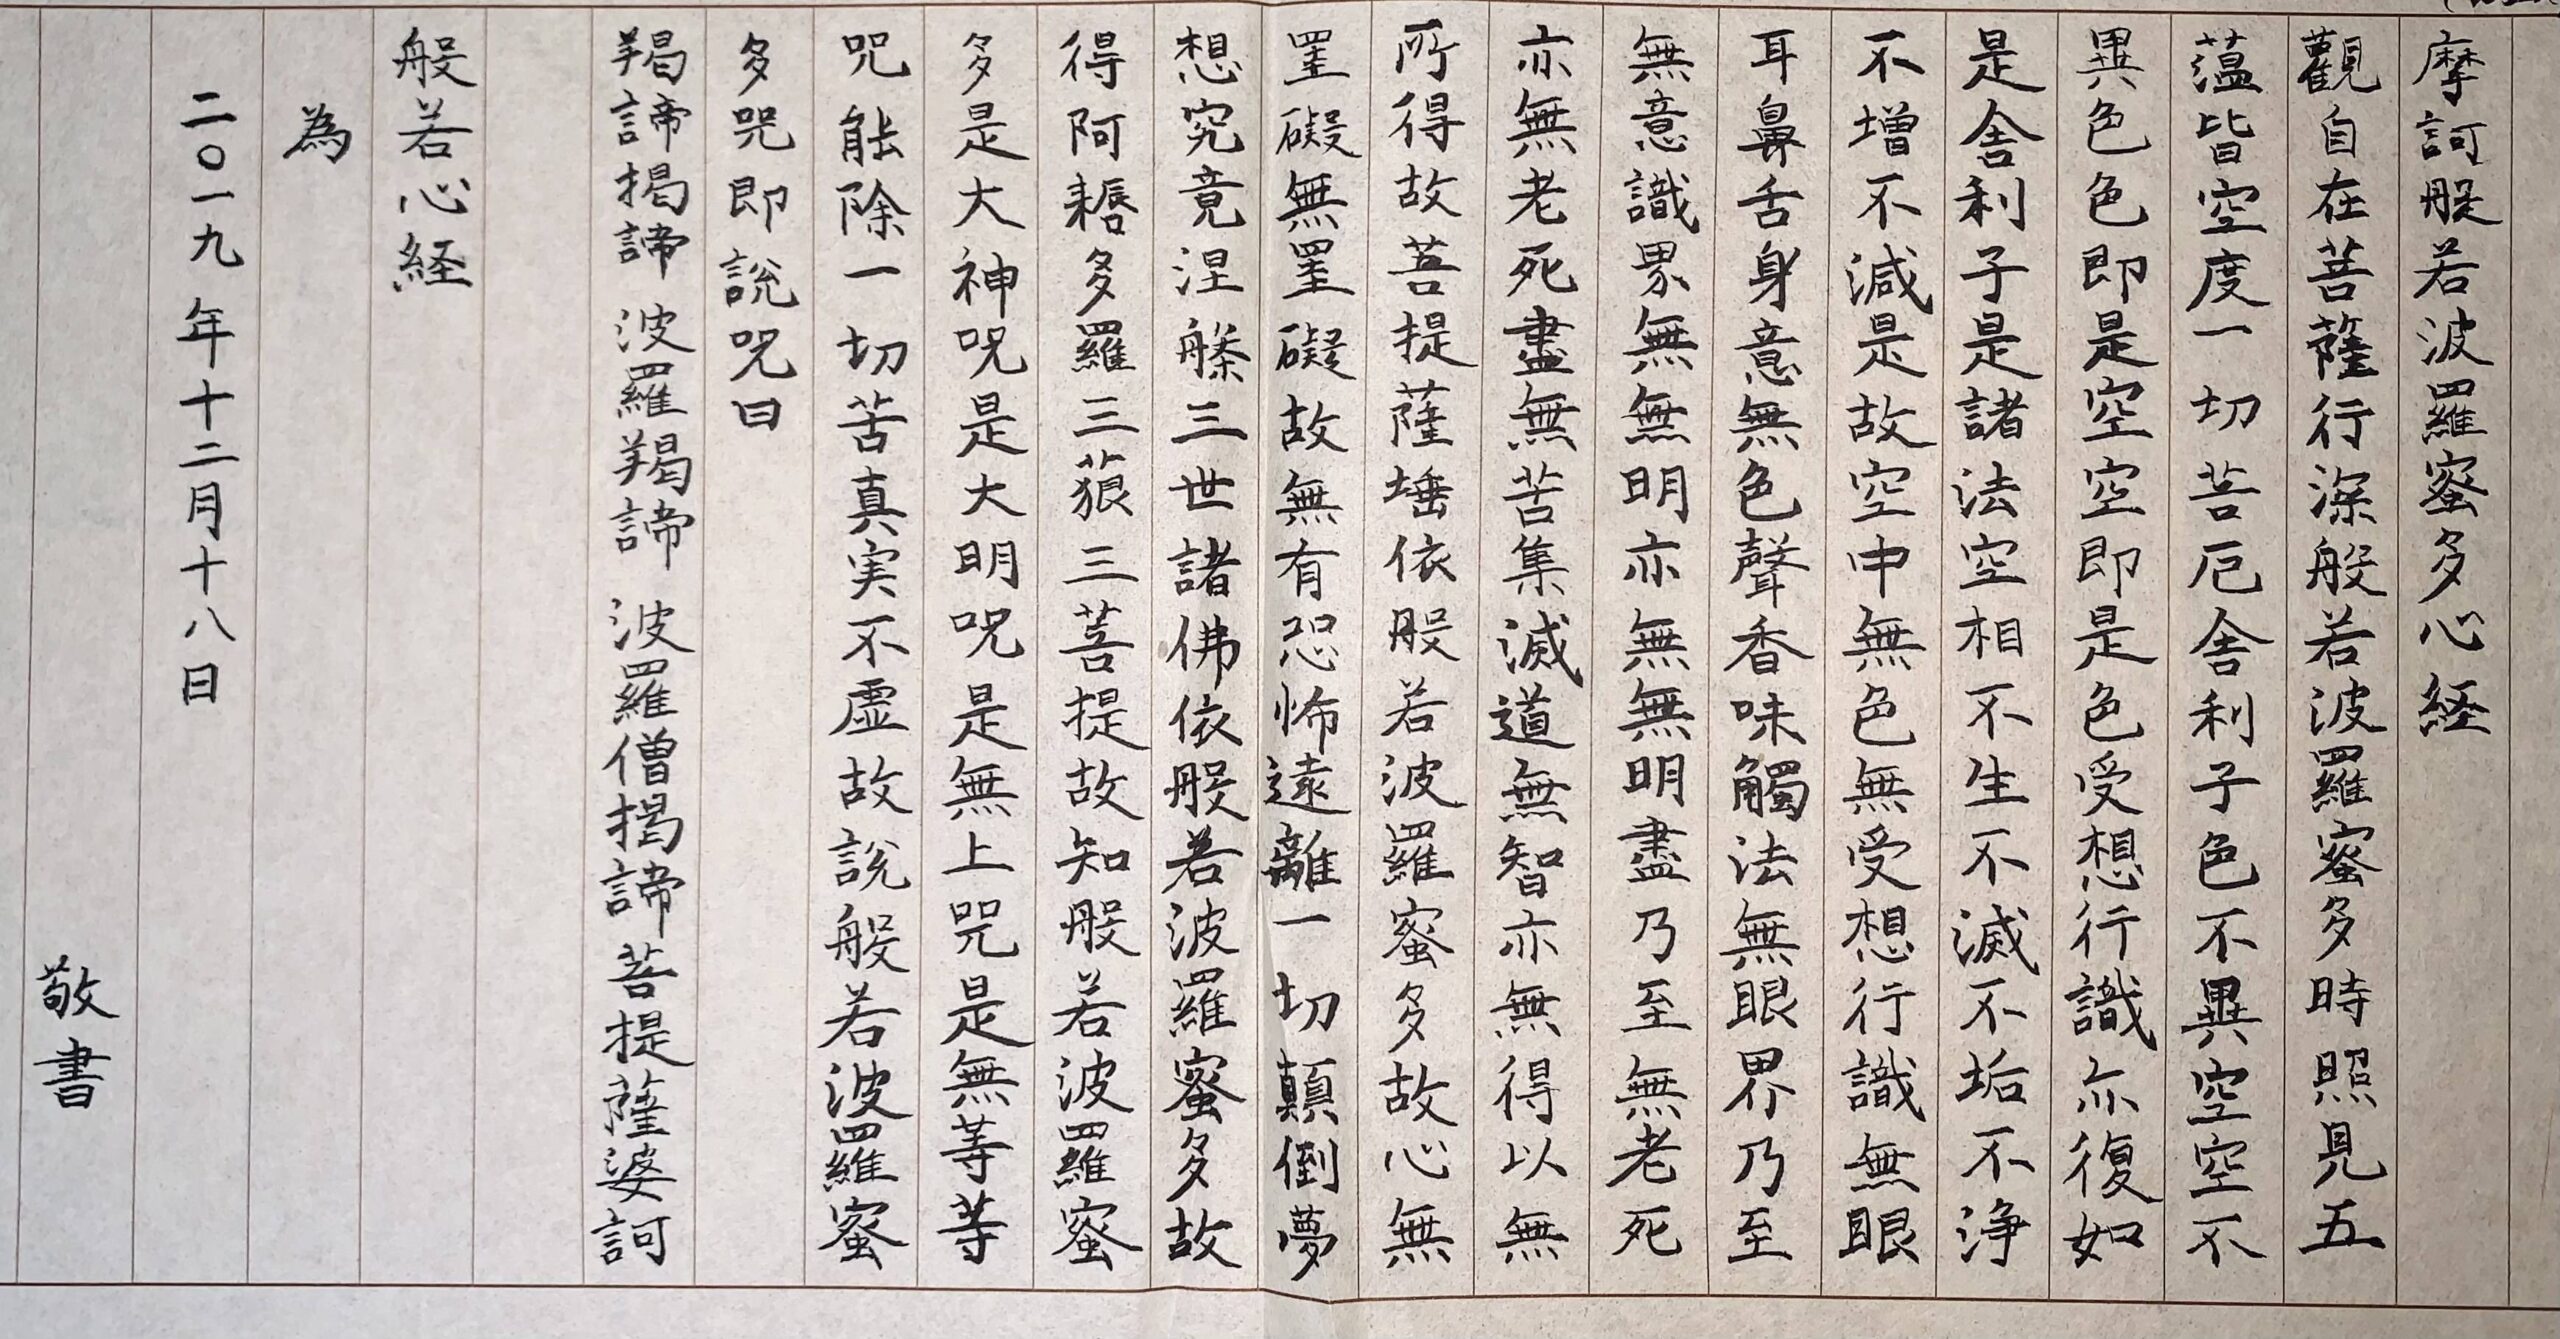 摩訶般若波羅蜜多心経
觀自在菩薩行深般若波羅蜜多時照見五
蘊皆空度一切苦厄舍利子色不異空空不
異色色即是空空即是色受想行識亦復如
是舍利子是諸法空相不生不滅不垢不浄
不増不減是故空中無色無受想行識無眼
耳鼻舌身意無色聲香味觸法無眼界乃至
無意識界無無明亦無無明盡乃至無老死
亦無老死盡無苦集滅道無智亦無得以無
所得故菩提薩埵依般若波羅蜜多故心無
罣礙無罣礙故無有恐怖遠離一切顛倒夢
想究竟涅槃三世諸佛依般若波羅蜜多故
得阿耨多羅三藐三菩提故知般若波羅蜜
多是大神呪是大明呪是無上呪是無等等
呪能除一切苦真実不虚故説般若波羅蜜
多呪即説呪曰
羯諦揭諦 波羅羯諦 波羅僧揭諦菩提薩婆訶
般若心経
為
二〇一九年十二月十八日
敬書